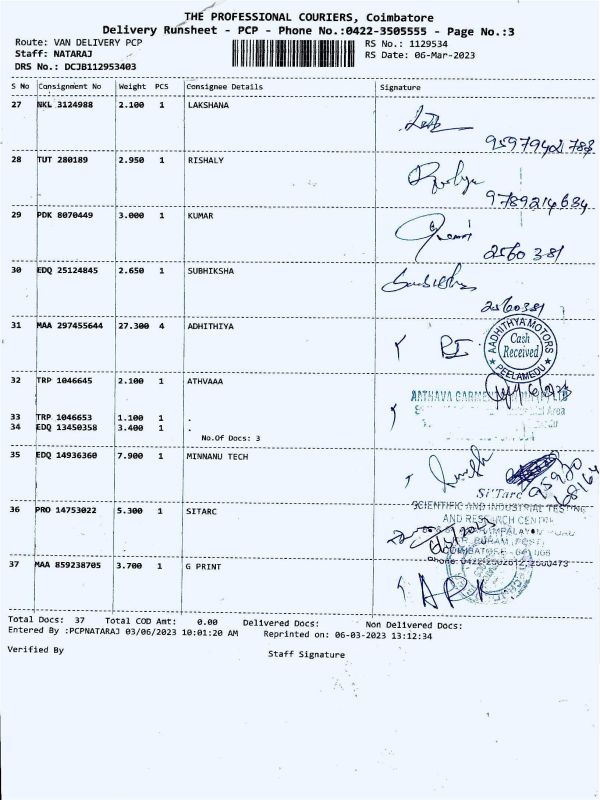 THE PROFESSIONAL COURIERS, Coimbatore
Delivery Runsheet - PCP - Phone No.:0422-3505555 - Page No.:3
Route: VAN DELIVERY PCP
RS No.: 1129534
Staff: NATARAJ
RS Date: 06-Mar-2023
DRS No.: DCJB112953403
S No Consignment No Weight PCS Consignee Details Signature
27 NKL 3124988 2.100 1 LAKSHANA
28 TUT 280189 2.950 1 RISHALY
29 PDK 8070449 3.000 1 KUMAR
2560 381
30 EDQ 25124845 2.650 1 SUBHIKSHA
2560381
31 MAA 297455644 27.300 4 ADHITHIYA
AADHITHYA MOTORS
Cash
Received
PEELAMEDU
32 TRP 1046645 2.100 1 ATHVAAA
33 TRP 1046653 1.100 1 .
34 EDQ 13450358 3.400 1 .
No.Of Docs: 3
35 EDQ 14936360 7.900 1 MINNANU TECH
Si'Tarc
36 PRO 14753022 5.300 1 SITARC
SCIENTIFIC AND INDUSTRIAL TESTING
AND RESEARCH CENTRE
37 MAA 859238705 3.700 1 G PRINT
Total Docs: 37 Total COD Amt: 0.00 Delivered Docs: Non Delivered Docs:
Entered By :PCPNATARAJ 03/06/2023 10:01:20 AM Reprinted on: 06-03-2023 13:12:34
Verified By
Staff Signature